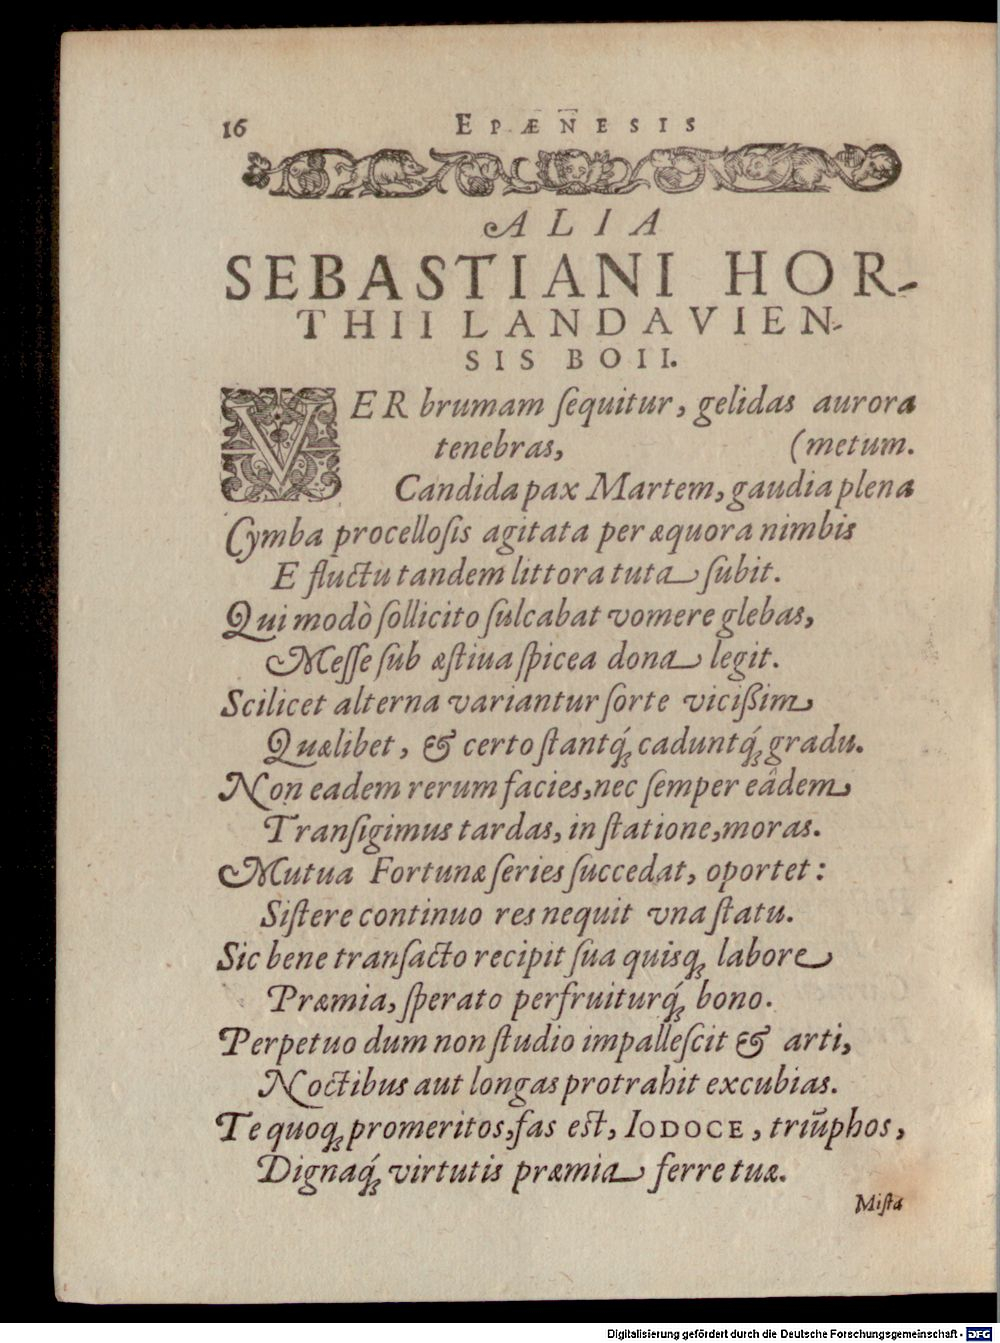 16 EPÆNESIS
ALIA
SEBASTIANI HOR-
THII LANDAVIEN-
SIS BOII.
VER brumam ſequitur, gelidas aurora
tenebras, (metum.
Candida pax Martem, gaudia plena
Cymba procelloſis agitata per æquora nimbis
E fluctu tandem littora tuta ſubit.
Qui modò ſollicito ſulcabat vomere glebas,
Meſſe ſub æſtiua ſpicea dona legit.
Scilicet alterna variantur ſorte vicißim
Quælibet, & certo ſtantq́; caduntq́; gradu.
Non eadem rerum facies, nec ſemper eâdem
Tranſigimus tardas, in ſtatione, moras.
Mutua Fortunæ ſeries ſuccedat, oportet:
Siſtere continuo res nequit vna ſtatu.
Sic bene tranſacto recipit ſua quisq; labore
Præmia, ſperato perfruiturq́; bono.
Perpetuo dum non ſtudio impalleſcit & arti,
Noctibus aut longas protrahit excubias.
Te quoq; promeritos, fas eſt, IODOCE, triũphos,
Dignaq́; virtutis præmia ferre tuæ.
Miſta
Digitalisierung gefördert durch die Deutsche Forschungsgemeinschaft - DFG